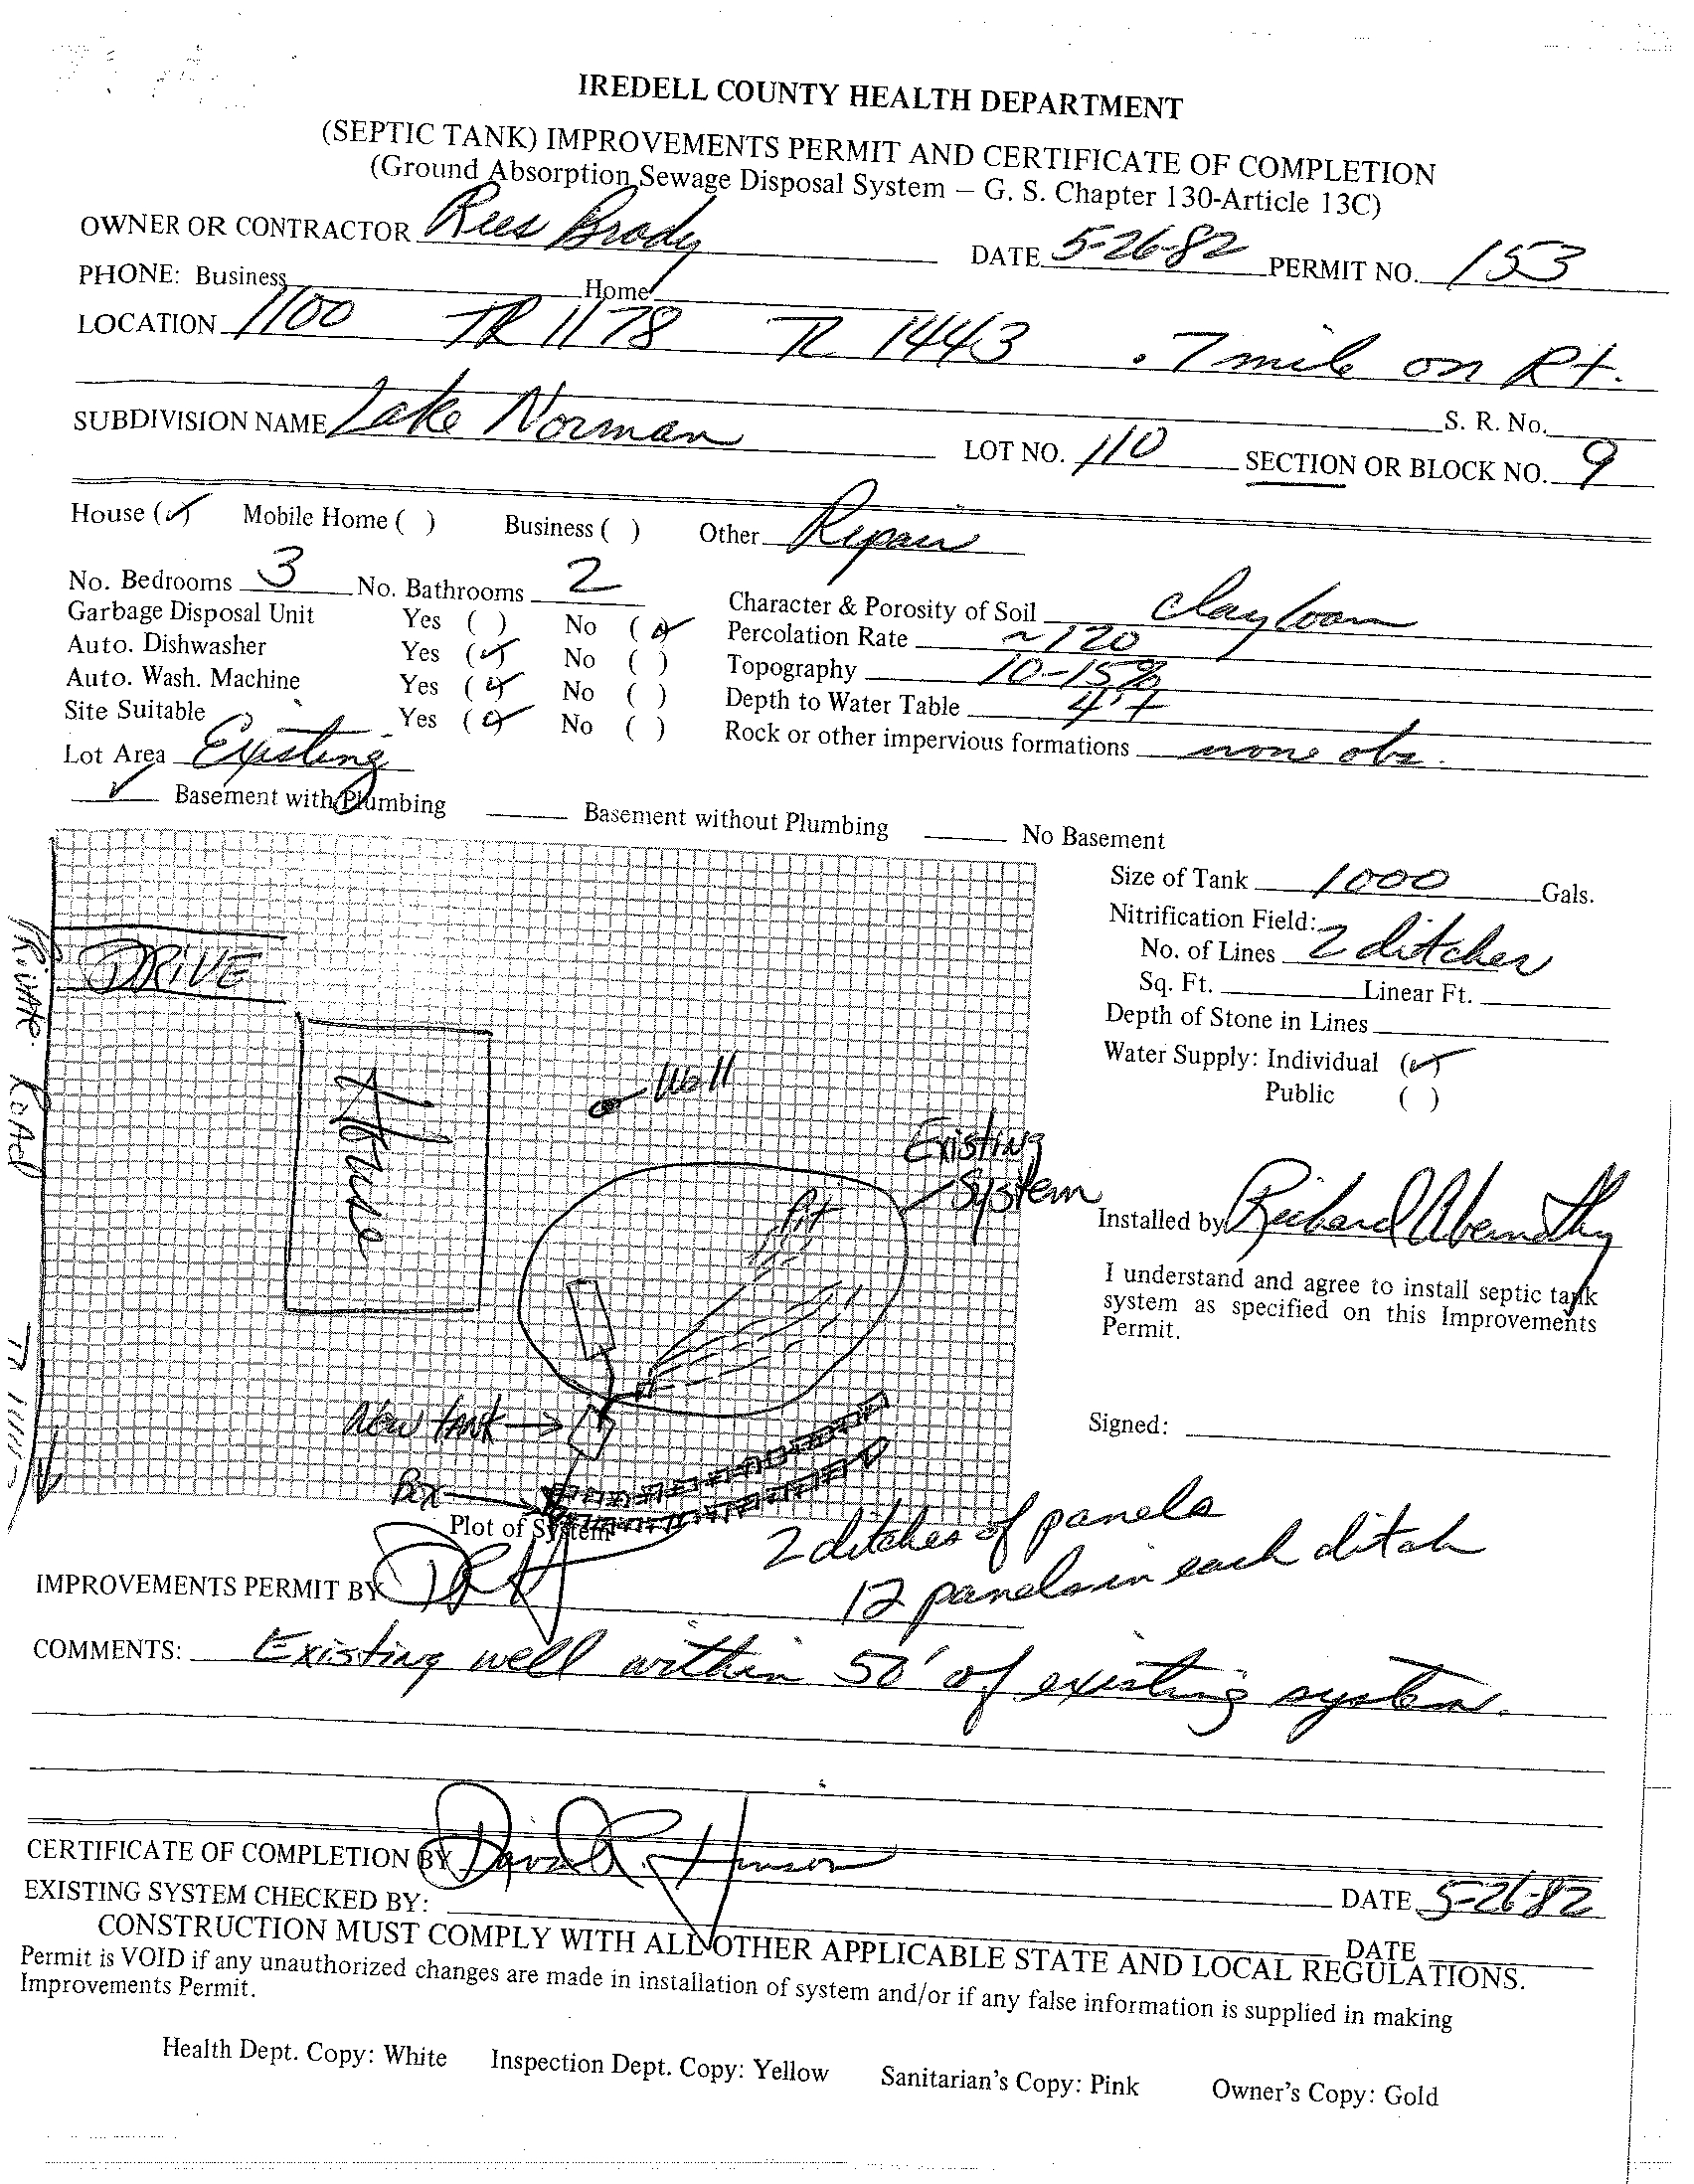 IREDELL COUNTY HEALTH DEPARTMENT
(SEPTIC TANK) IMPROVEMENTS PERMIT AND CERTIFICATE OF COMPLETION
(Ground Absorption Sewage Disposal System – G. S. Chapter 130-Article 13C)
OWNER OR CONTRACTOR Rees Brady DATE 5-26-82 PERMIT NO. 153
PHONE: Business Home
LOCATION 1100 TR 1178 TL 1443 .7 mile on Rt.
S. R. No.
SUBDIVISION NAME Lake Norman LOT NO. 110 SECTION OR BLOCK NO. 9
House (✓) Mobile Home ( ) Business ( ) Other Repair
No. Bedrooms 3 No. Bathrooms 2
Garbage Disposal Unit Yes ( ) No (✓)
Auto. Dishwasher Yes (✓) No ( )
Auto. Wash. Machine Yes (✓) No ( )
Site Suitable Yes (✓) No ( )
Lot Area Existing
Character & Porosity of Soil clay loam
Percolation Rate ~120
Topography 10-15%
Depth to Water Table 4'+
Rock or other impervious formations none obs.
✓ Basement with Plumbing Basement without Plumbing No Basement
Size of Tank 1000 Gals.
Nitrification Field:
No. of Lines 2 ditches
Sq. Ft. Linear Ft.
Depth of Stone in Lines
Water Supply: Individual (✓)
Public ( )
Installed by Richard Abernathy
I understand and agree to install septic tank
system as specified on this Improvements
Permit.
Signed:
PRIVATE ROAD
DRIVE
House
Well
Existing
System
Pit
New tank
Box
Plot of System
2 ditches of panels
12 panels in each ditch
IMPROVEMENTS PERMIT BY DRH
COMMENTS: Existing well within 50' of existing system.
CERTIFICATE OF COMPLETION BY David R. Hinson DATE 5-26-82
EXISTING SYSTEM CHECKED BY: DATE
CONSTRUCTION MUST COMPLY WITH ALL OTHER APPLICABLE STATE AND LOCAL REGULATIONS.
Permit is VOID if any unauthorized changes are made in installation of system and/or if any false information is supplied in making
Improvements Permit.
Health Dept. Copy: White Inspection Dept. Copy: Yellow Sanitarian's Copy: Pink Owner's Copy: Gold